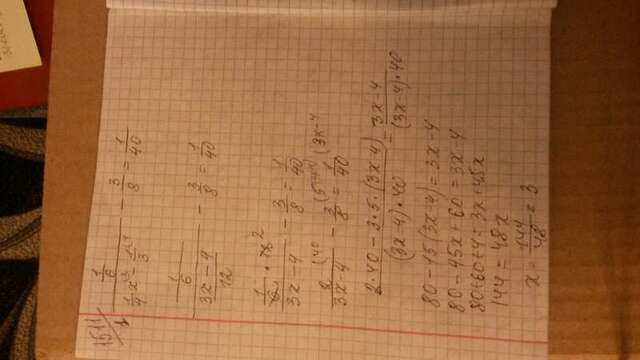 1511/1
(1/6)/(1/4 x - 1/3) - 3/8 = 1/40
(1/6)/((3x-4)/12) - 3/8 = 1/40
(1/6 · 12 2)/(3x-4) - 3/8 = 1/40
2 (40 / (3x-4) - 3 (5 / 8 = 1 (3x-4 / 40
(2·40-3·5·(3x-4))/((3x-4)·40) = (3x-4)/((3x-4)·40)
80-15(3x-4)=3x-4
80-45x+60=3x-4
80+60+4=3x+45x
144=48x
x=144/48=3